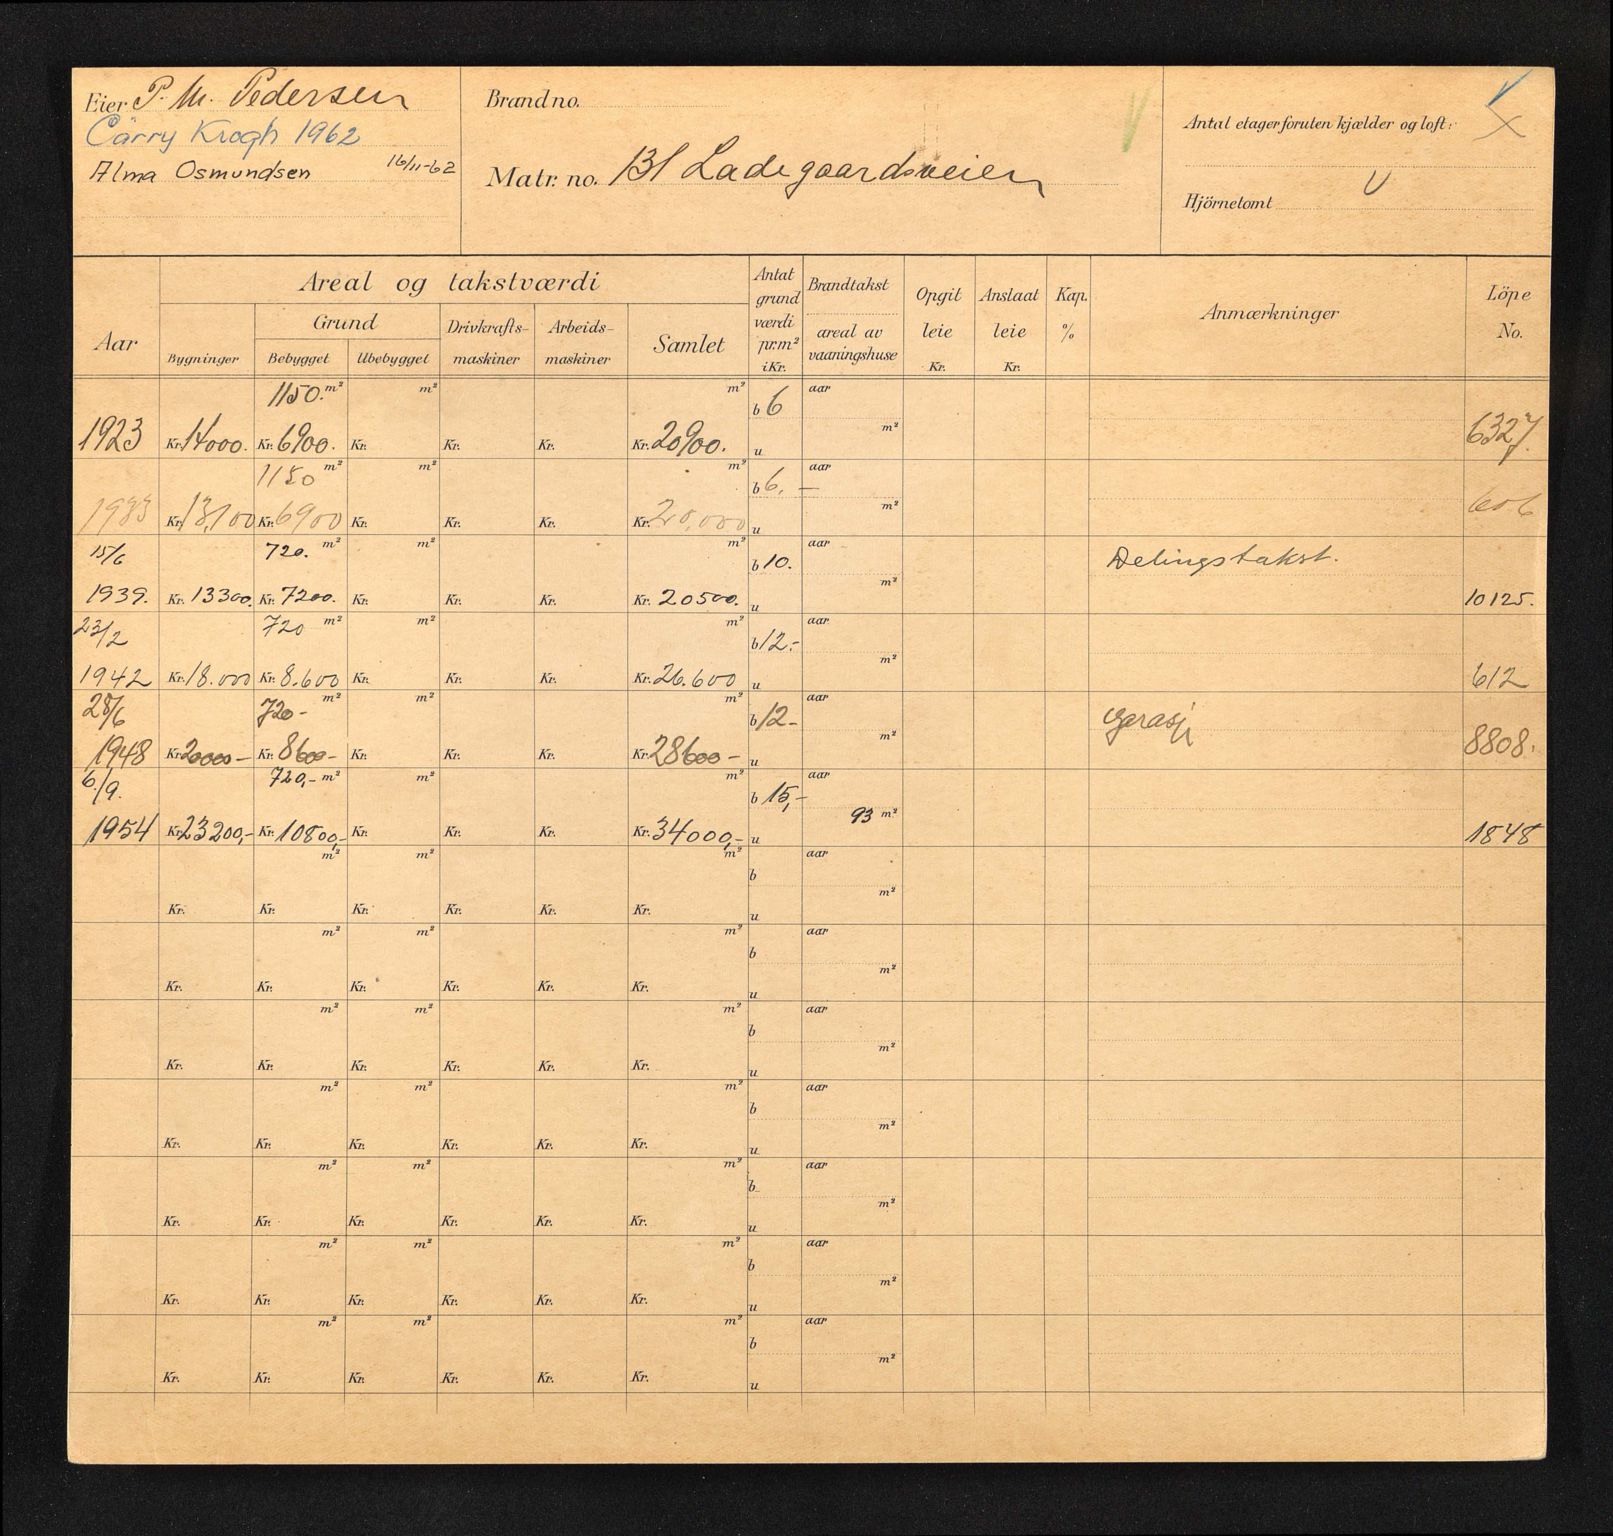 Eier P. M. Pedersen
Carry Krogh 1962
Alma Osmundsen 16/11-62
Brand no.
Matr. no. 131 Ladegaardsveien
Antal etager foruten kjælder og loft:
Hjörnetomt
Aar
Areal og takstværdi
Bygninger
Grund
Bebygget Ubebygget
Drivkrafts-
maskiner
Arbeids-
maskiner
Samlet
Antat
grund
værdi
pr. m²
i Kr.
Brandtakst
areal av
vaaningshuse
Opgit
leie
Kr.
Anslaat
leie
Kr.
Kap.
%
Anmærkninger
Löpe
No.
1150. m² m² m² b 6 aar
m²
1923 Kr. 14000. Kr. 6900. Kr. Kr. Kr. Kr. 20900. u 6327
1150 m² m² m² b 6,— aar
m²
1933 Kr. 13,100 Kr. 6900 Kr. Kr. Kr. Kr. 20,000 u 606
15/6 720. m² m² m² b 10. aar Delingstakst.
m²
1939. Kr. 13300. Kr. 7200. Kr. Kr. Kr. Kr. 20500. u 10125.
23/2 720 m² m² m² b 12.- aar
m²
1942 Kr. 18.000 Kr. 8.600 Kr. Kr. Kr. Kr. 26.600 u 612
28/6 720- m² m² m² b 12- aar Garasj
m²
1948 Kr. 20000- Kr. 8600- Kr. Kr. Kr. Kr. 28600- u 8808.
6/9. 720,- m² m² m² b 15,- aar
93 m²
1954 Kr. 23200,- Kr. 10800,- Kr. Kr. Kr. Kr. 34000,- u 1848
m² m² m² b aar
m²
Kr. Kr. Kr. Kr. Kr. Kr. u
m² m² m² b aar
m²
Kr. Kr. Kr. Kr. Kr. Kr. u
m² m² m² b aar
m²
Kr. Kr. Kr. Kr. Kr. Kr. u
m² m² m² b aar
m²
Kr. Kr. Kr. Kr. Kr. Kr. u
m² m² m² b aar
m²
Kr. Kr. Kr. Kr. Kr. Kr. u
m² m² m² b aar
m²
Kr. Kr. Kr. Kr. Kr. Kr. u
m² m² m² b aar
m²
Kr. Kr. Kr. Kr. Kr. Kr. u